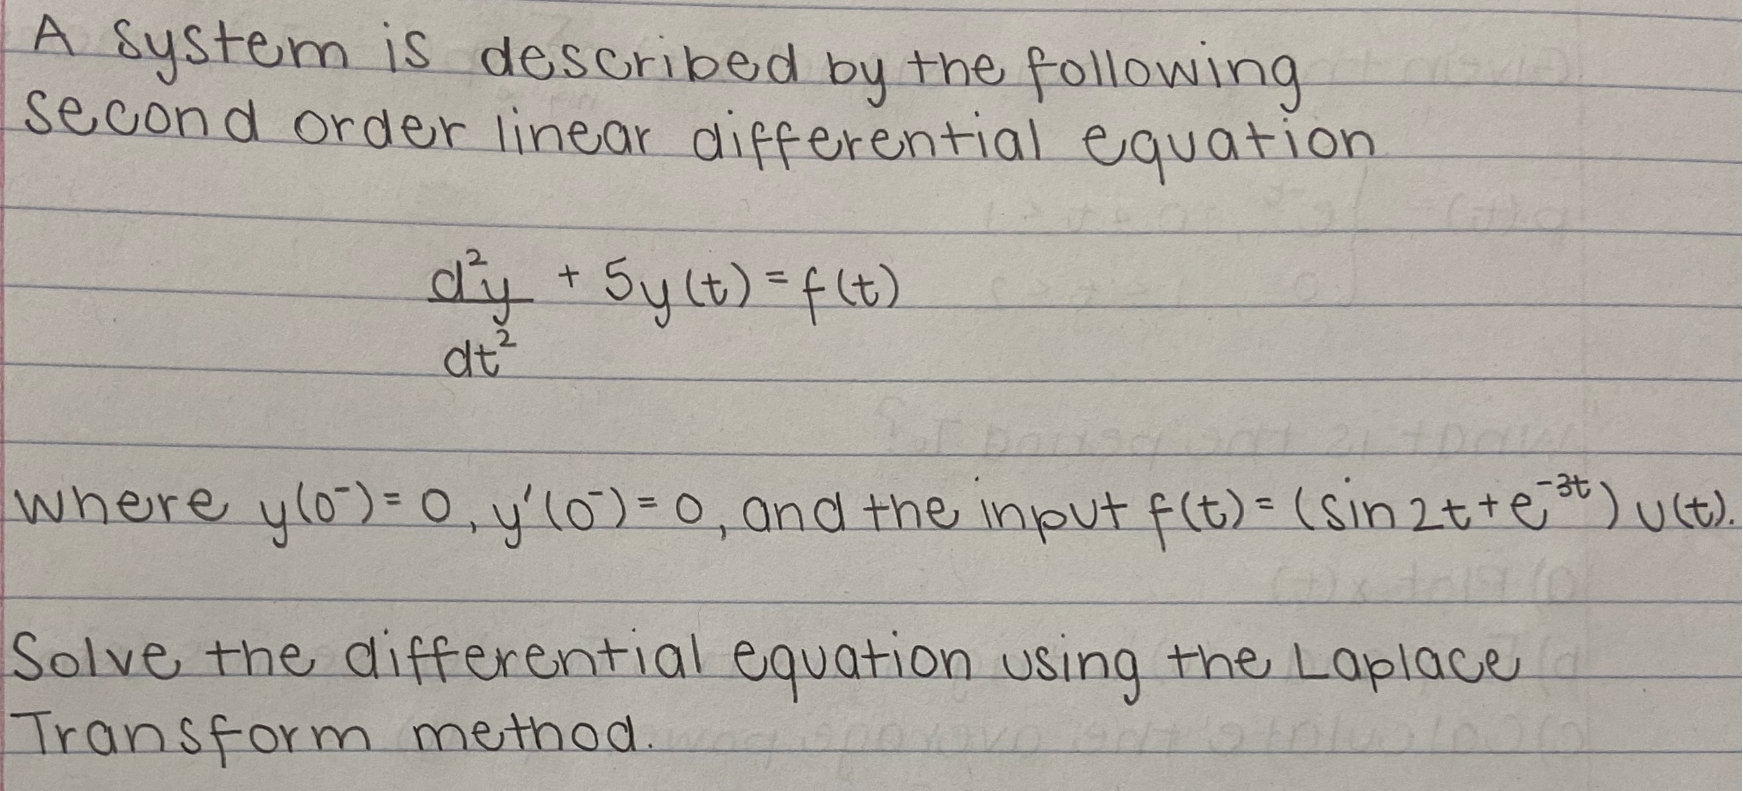 A system is described by the following
second order linear differential equation
d²y/dt² + 5y(t) = f(t)
where y(0⁻) = 0, y'(0⁻) = 0, and the input f(t) = (sin2t + e⁻³ᵗ) u(t).
Solve the differential equation using the Laplace
Transform method.